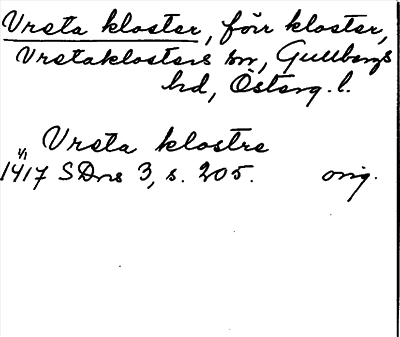 Vreta kloster, förr kloster,
Vretaklosters sn, Gullbergs
hd, Österg. l.
Vreta klostre
1/1
1417 SDns 3, s. 205. orig.